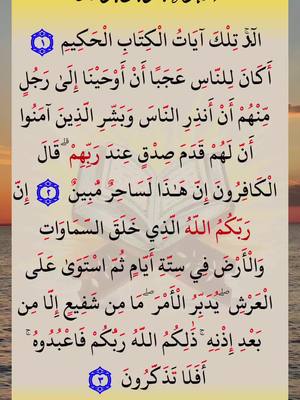 الٓرۚ تِلْكَ آيَاتُ الْكِتَابِ الْحَكِيمِ ١
أَكَانَ لِلنَّاسِ عَجَبًا أَنْ أَوْحَيْنَا إِلَىٰ رَجُلٍ
مِّنْهُمْ أَنْ أَنذِرِ النَّاسَ وَبَشِّرِ الَّذِينَ آمَنُوا
أَنَّ لَهُمْ قَدَمَ صِدْقٍ عِندَ رَبِّهِمْ ۗ قَالَ
الْكَافِرُونَ إِنَّ هَـٰذَا لَسَاحِرٌ مُّبِينٌ ٢ إِنَّ
رَبَّكُمُ اللَّهُ الَّذِي خَلَقَ السَّمَاوَاتِ
وَالْأَرْضَ فِي سِتَّةِ أَيَّامٍ ثُمَّ اسْتَوَىٰ عَلَى
الْعَرْشِ ۖ يُدَبِّرُ الْأَمْرَ ۖ مَا مِن شَفِيعٍ إِلَّا مِن
بَعْدِ إِذْنِهِ ۚ ذَٰلِكُمُ اللَّهُ رَبُّكُمْ فَاعْبُدُوهُ ۚ
أَفَلَا تَذَكَّرُونَ ٣